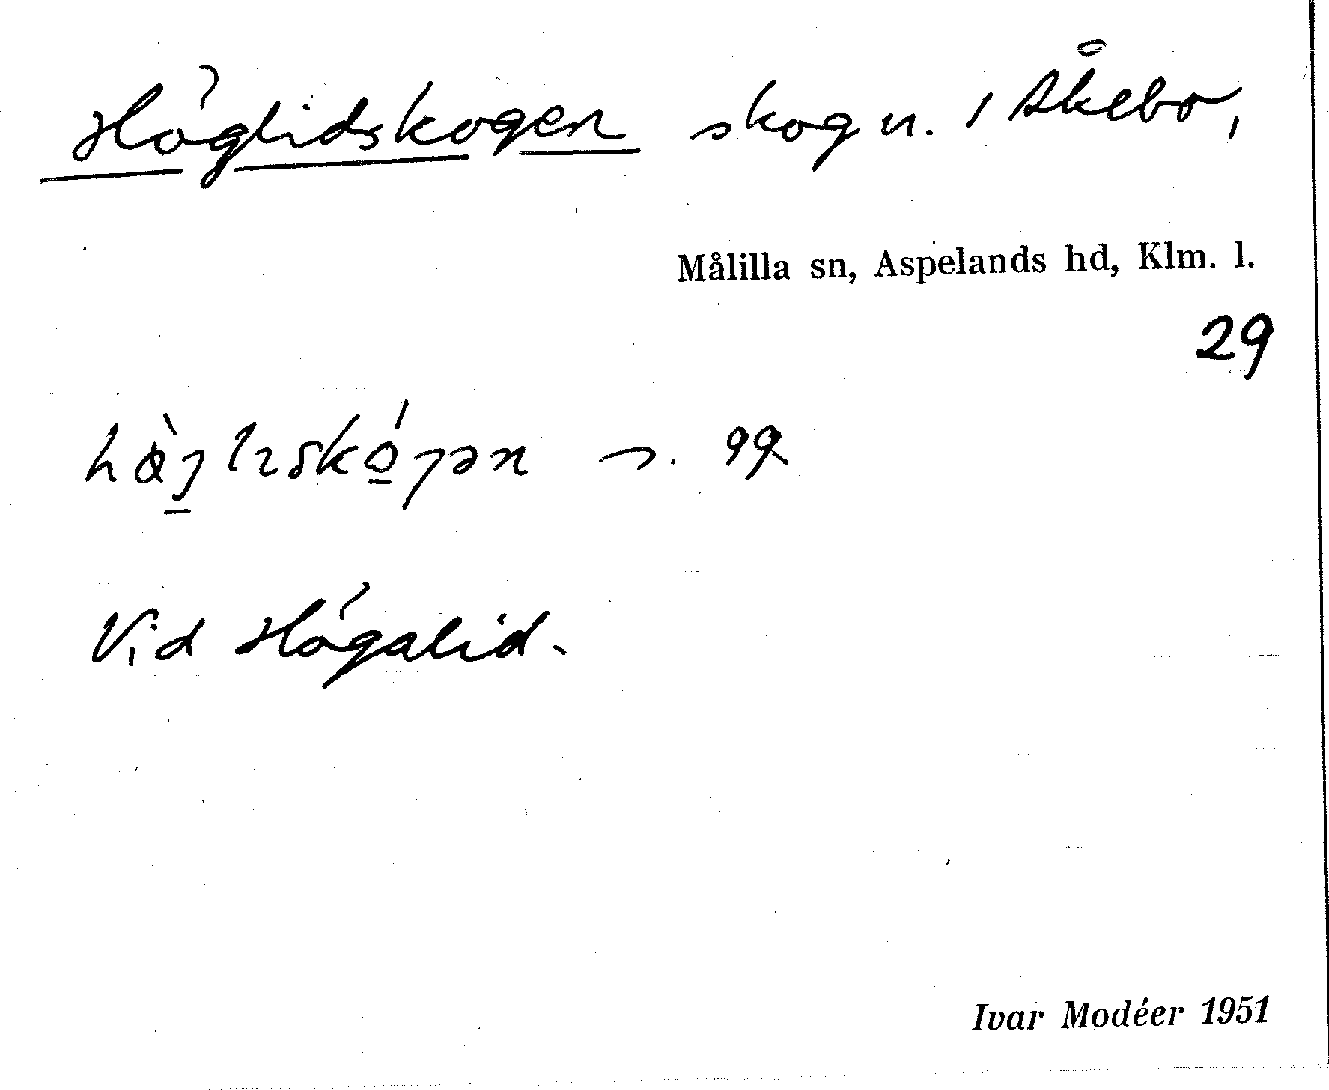 Höglidskogen skog n. / Åkebo,
Målilla sn, Aspelands hd, Klm. l.
29
Vid Högalid.
Ivar Modéer 1951